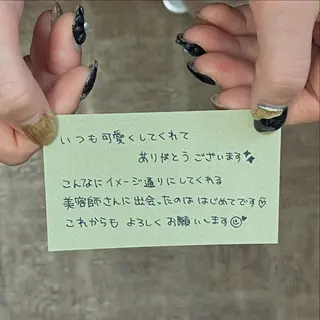 いつも可愛くしてくれて
ありがとうございます✨
こんなにイメージ通りにしてくれる
美容師さんに出会ったのははじめてです♡
これからもよろしくお願いします☺